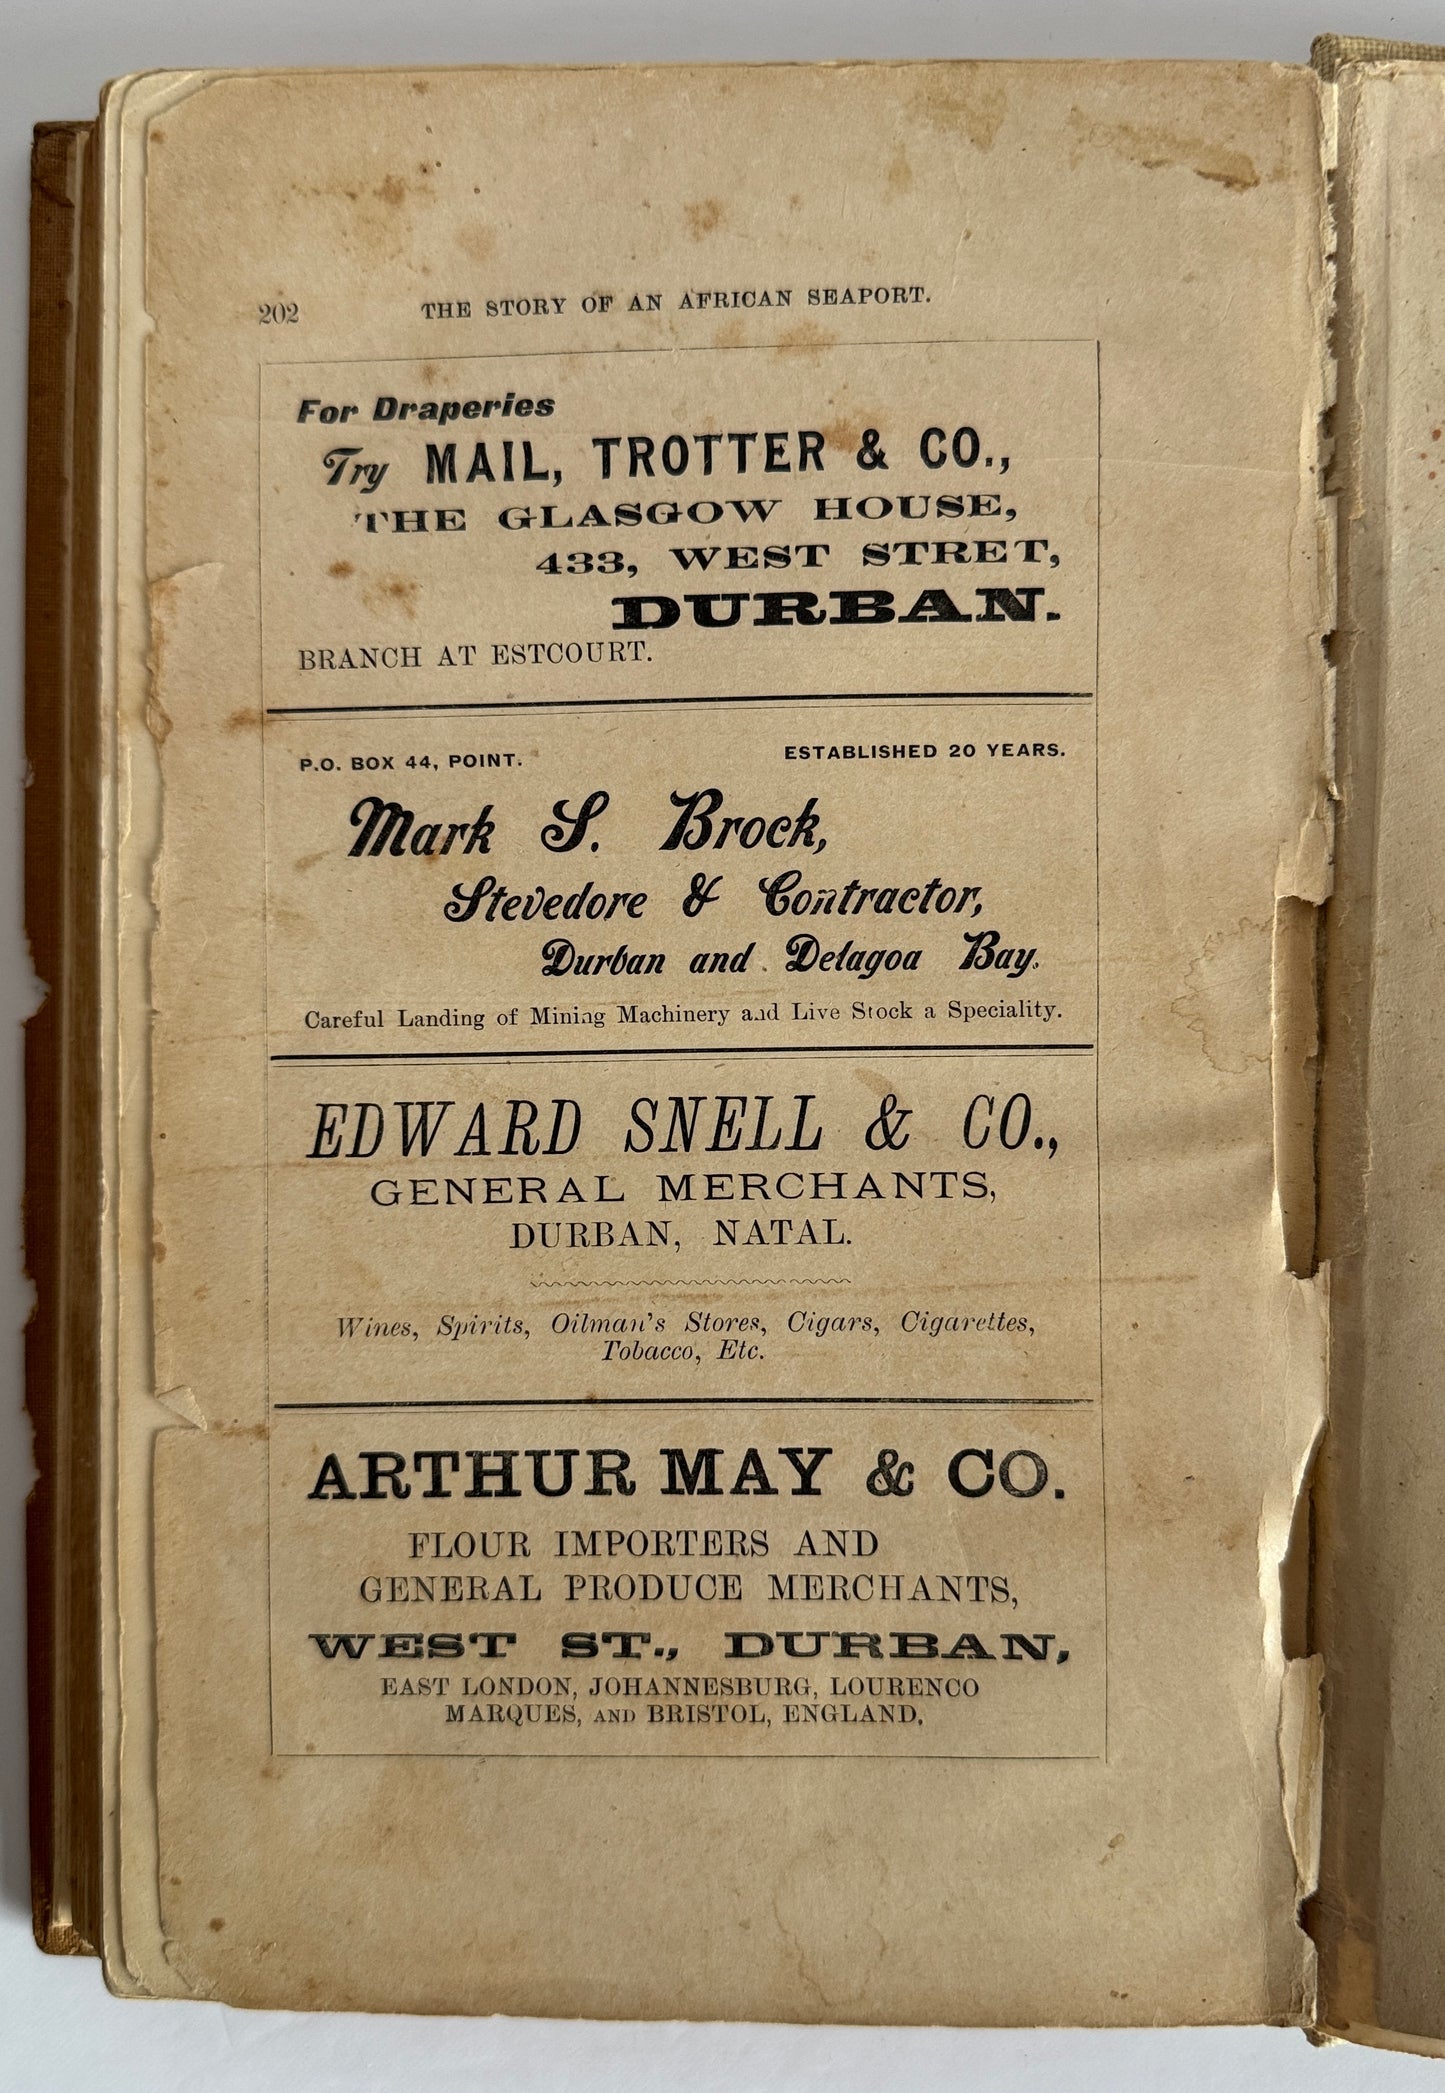 202 THE STORY OF AN AFRICAN SEAPORT.
For Draperies
Try MAIL, TROTTER & CO.,
THE GLASGOW HOUSE,
433, WEST STRET,
DURBAN.
BRANCH AT ESTCOURT.
P.O. BOX 44, POINT. ESTABLISHED 20 YEARS.
Mark S. Brock,
Stevedore & Contractor,
Durban and Delagoa Bay.
Careful Landing of Mining Machinery and Live Stock a Speciality.
EDWARD SNELL & CO.,
GENERAL MERCHANTS,
DURBAN, NATAL.
Wines, Spirits, Oilman's Stores, Cigars, Cigarettes,
Tobacco, Etc.
ARTHUR MAY & CO.
FLOUR IMPORTERS AND
GENERAL PRODUCE MERCHANTS,
WEST ST., DURBAN,
EAST LONDON, JOHANNESBURG, LOURENCO
MARQUES, AND BRISTOL, ENGLAND.